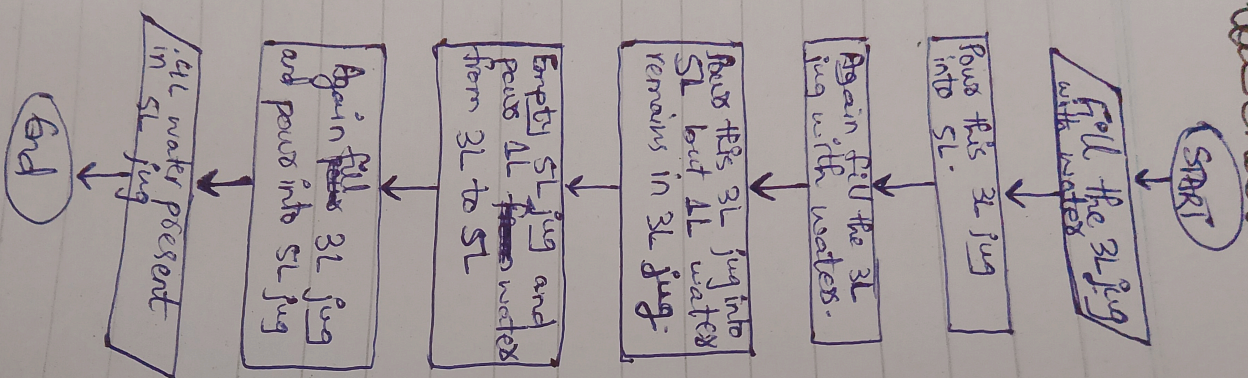 START
Fill the 3L jug
with water
Pour this 3L jug
into 5L.
Again fill the 3L
jug with water.
Pour this 3L jug into
5L but 1L water
remains in 3L jug.
Empty 5L jug and
pour 1L water
from 3L to 5L
Again fill 3L jug
and pour into 5L jug
4L water present
in 5L jug
End